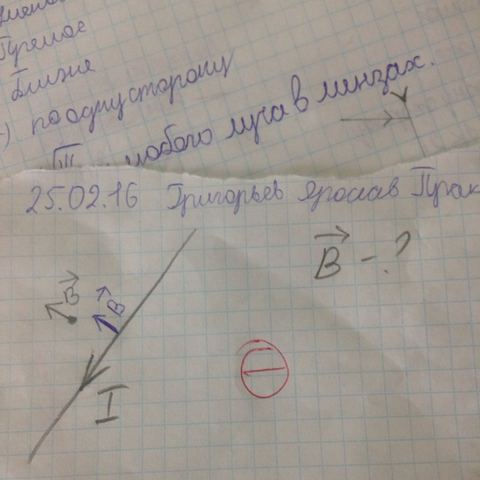 Прямое
Ближе
) по одну сторону
III любого луча в линзах.
25.02.16 Григорьев Ярослав Прак
B - ?
B
B
I